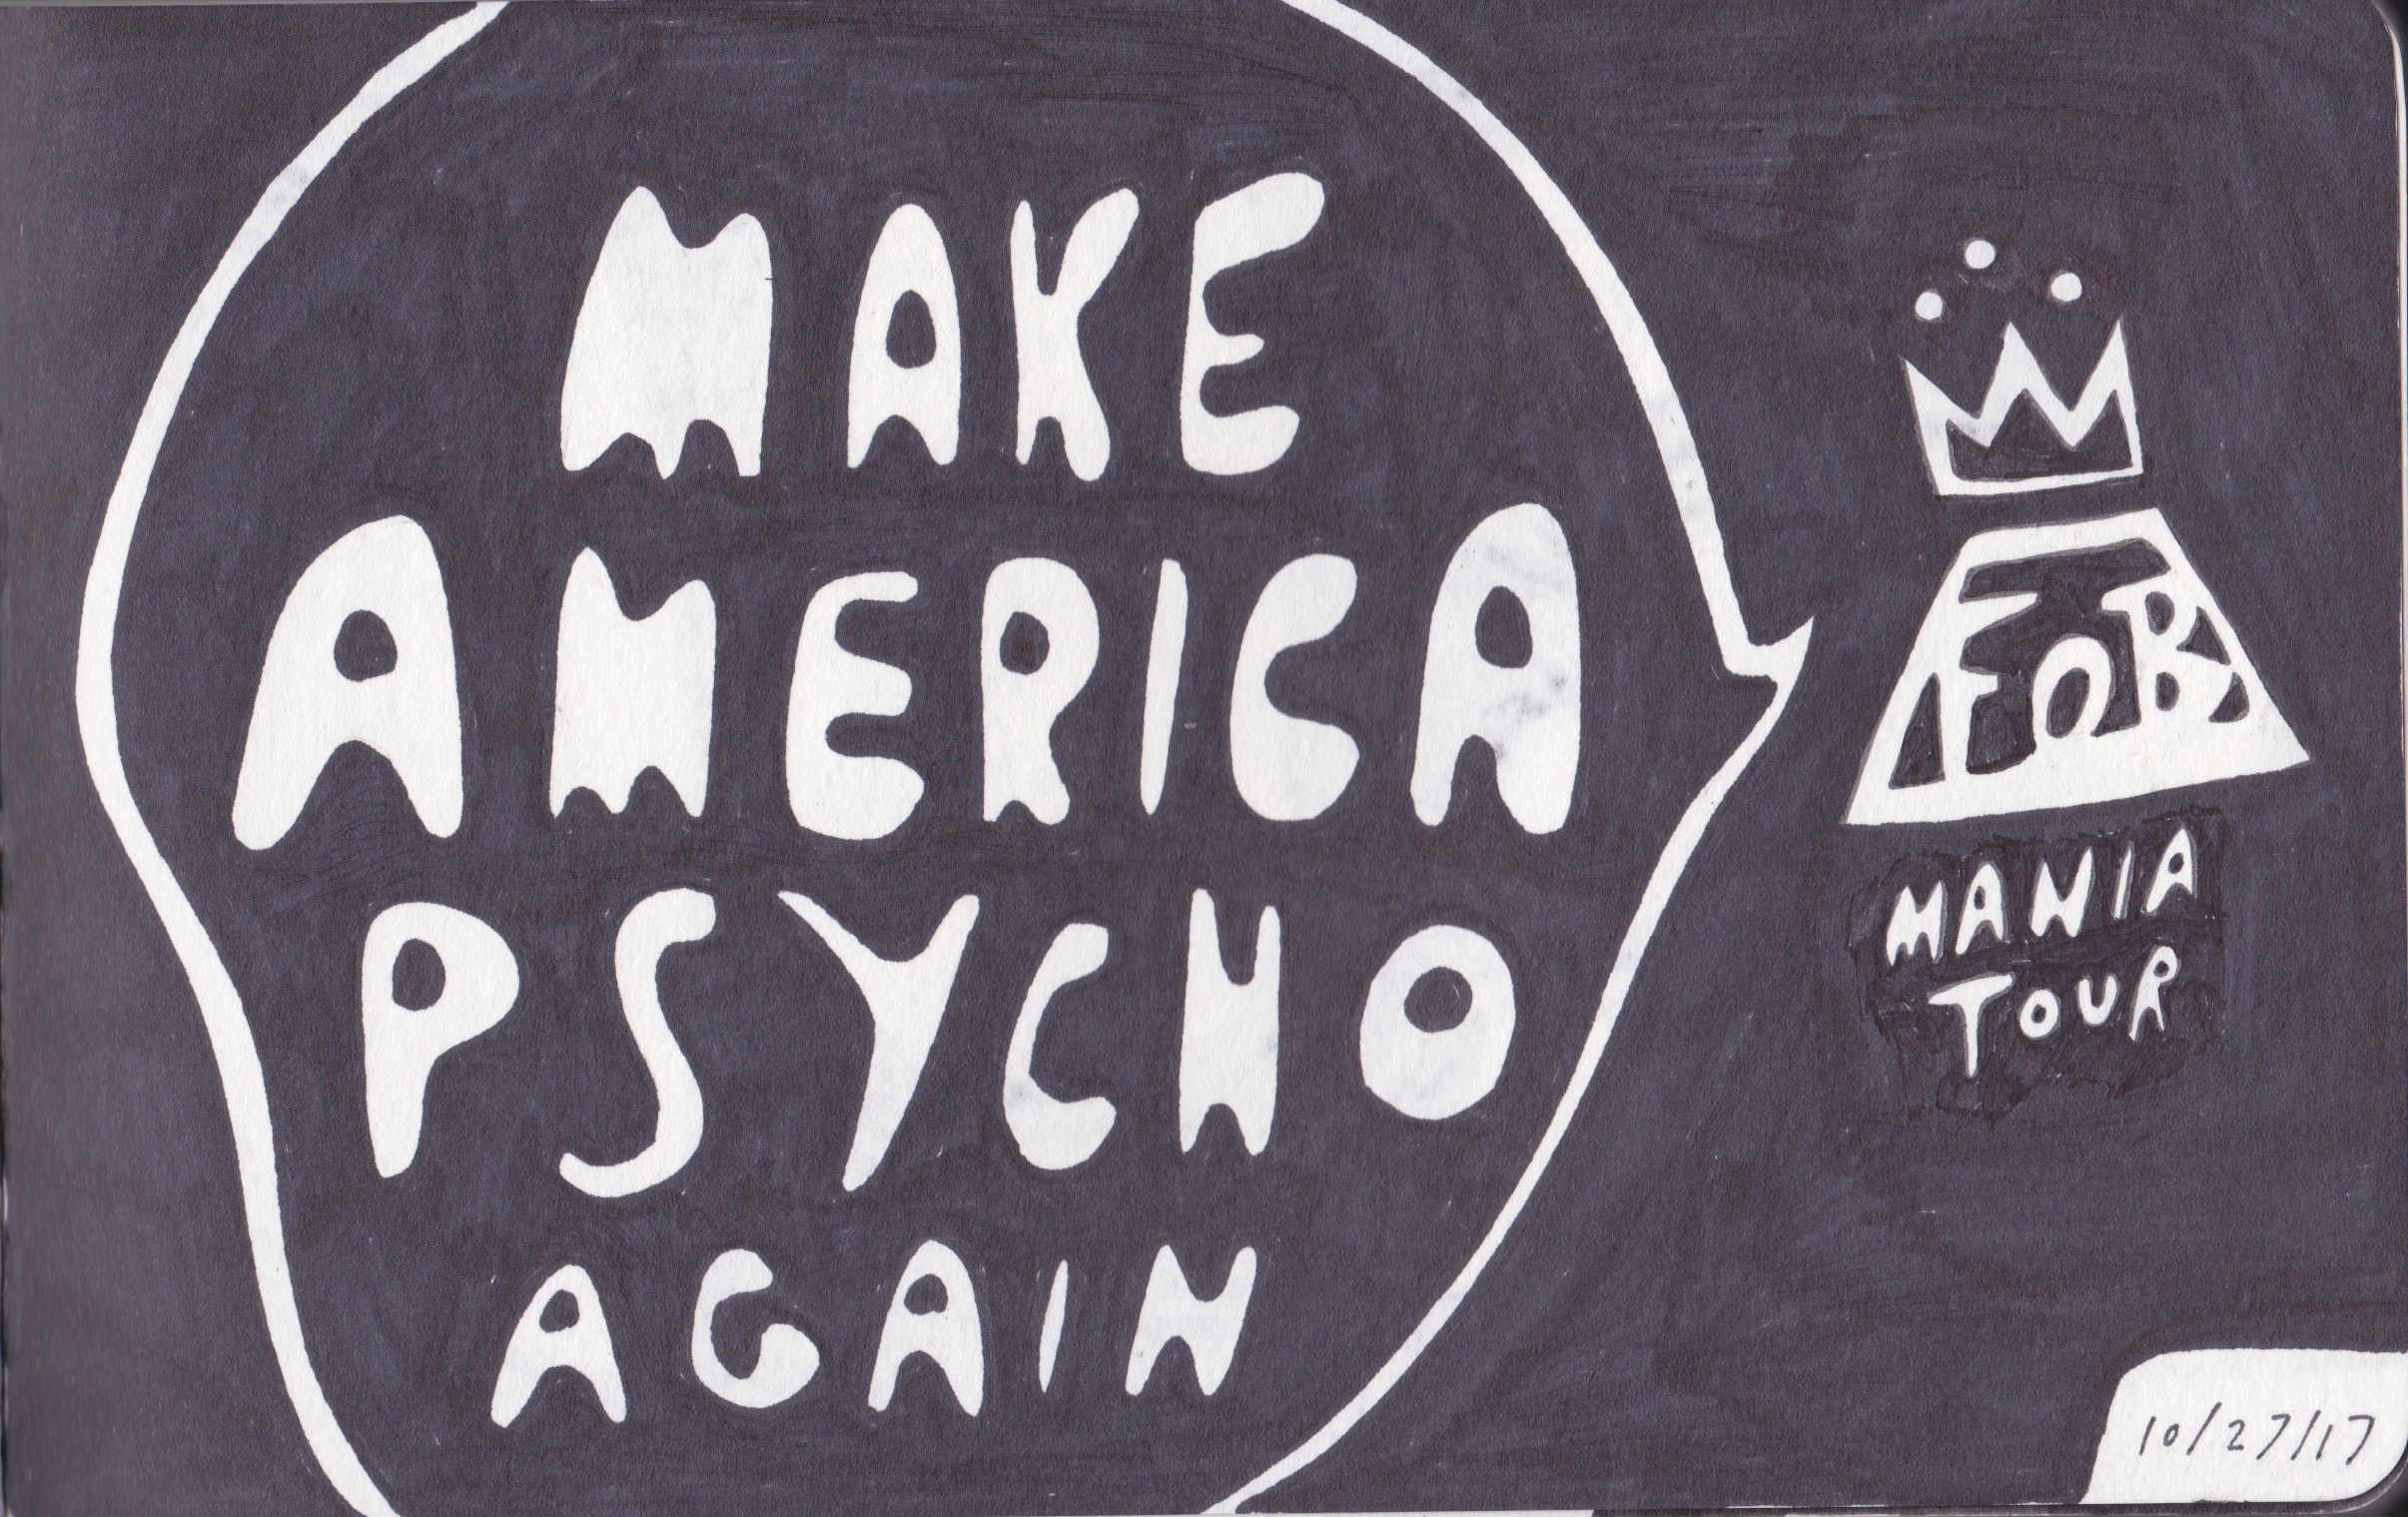 MAKE
AMERICA
PSYCHO
AGAIN
FOB
MANIA
TOUR
10/27/17